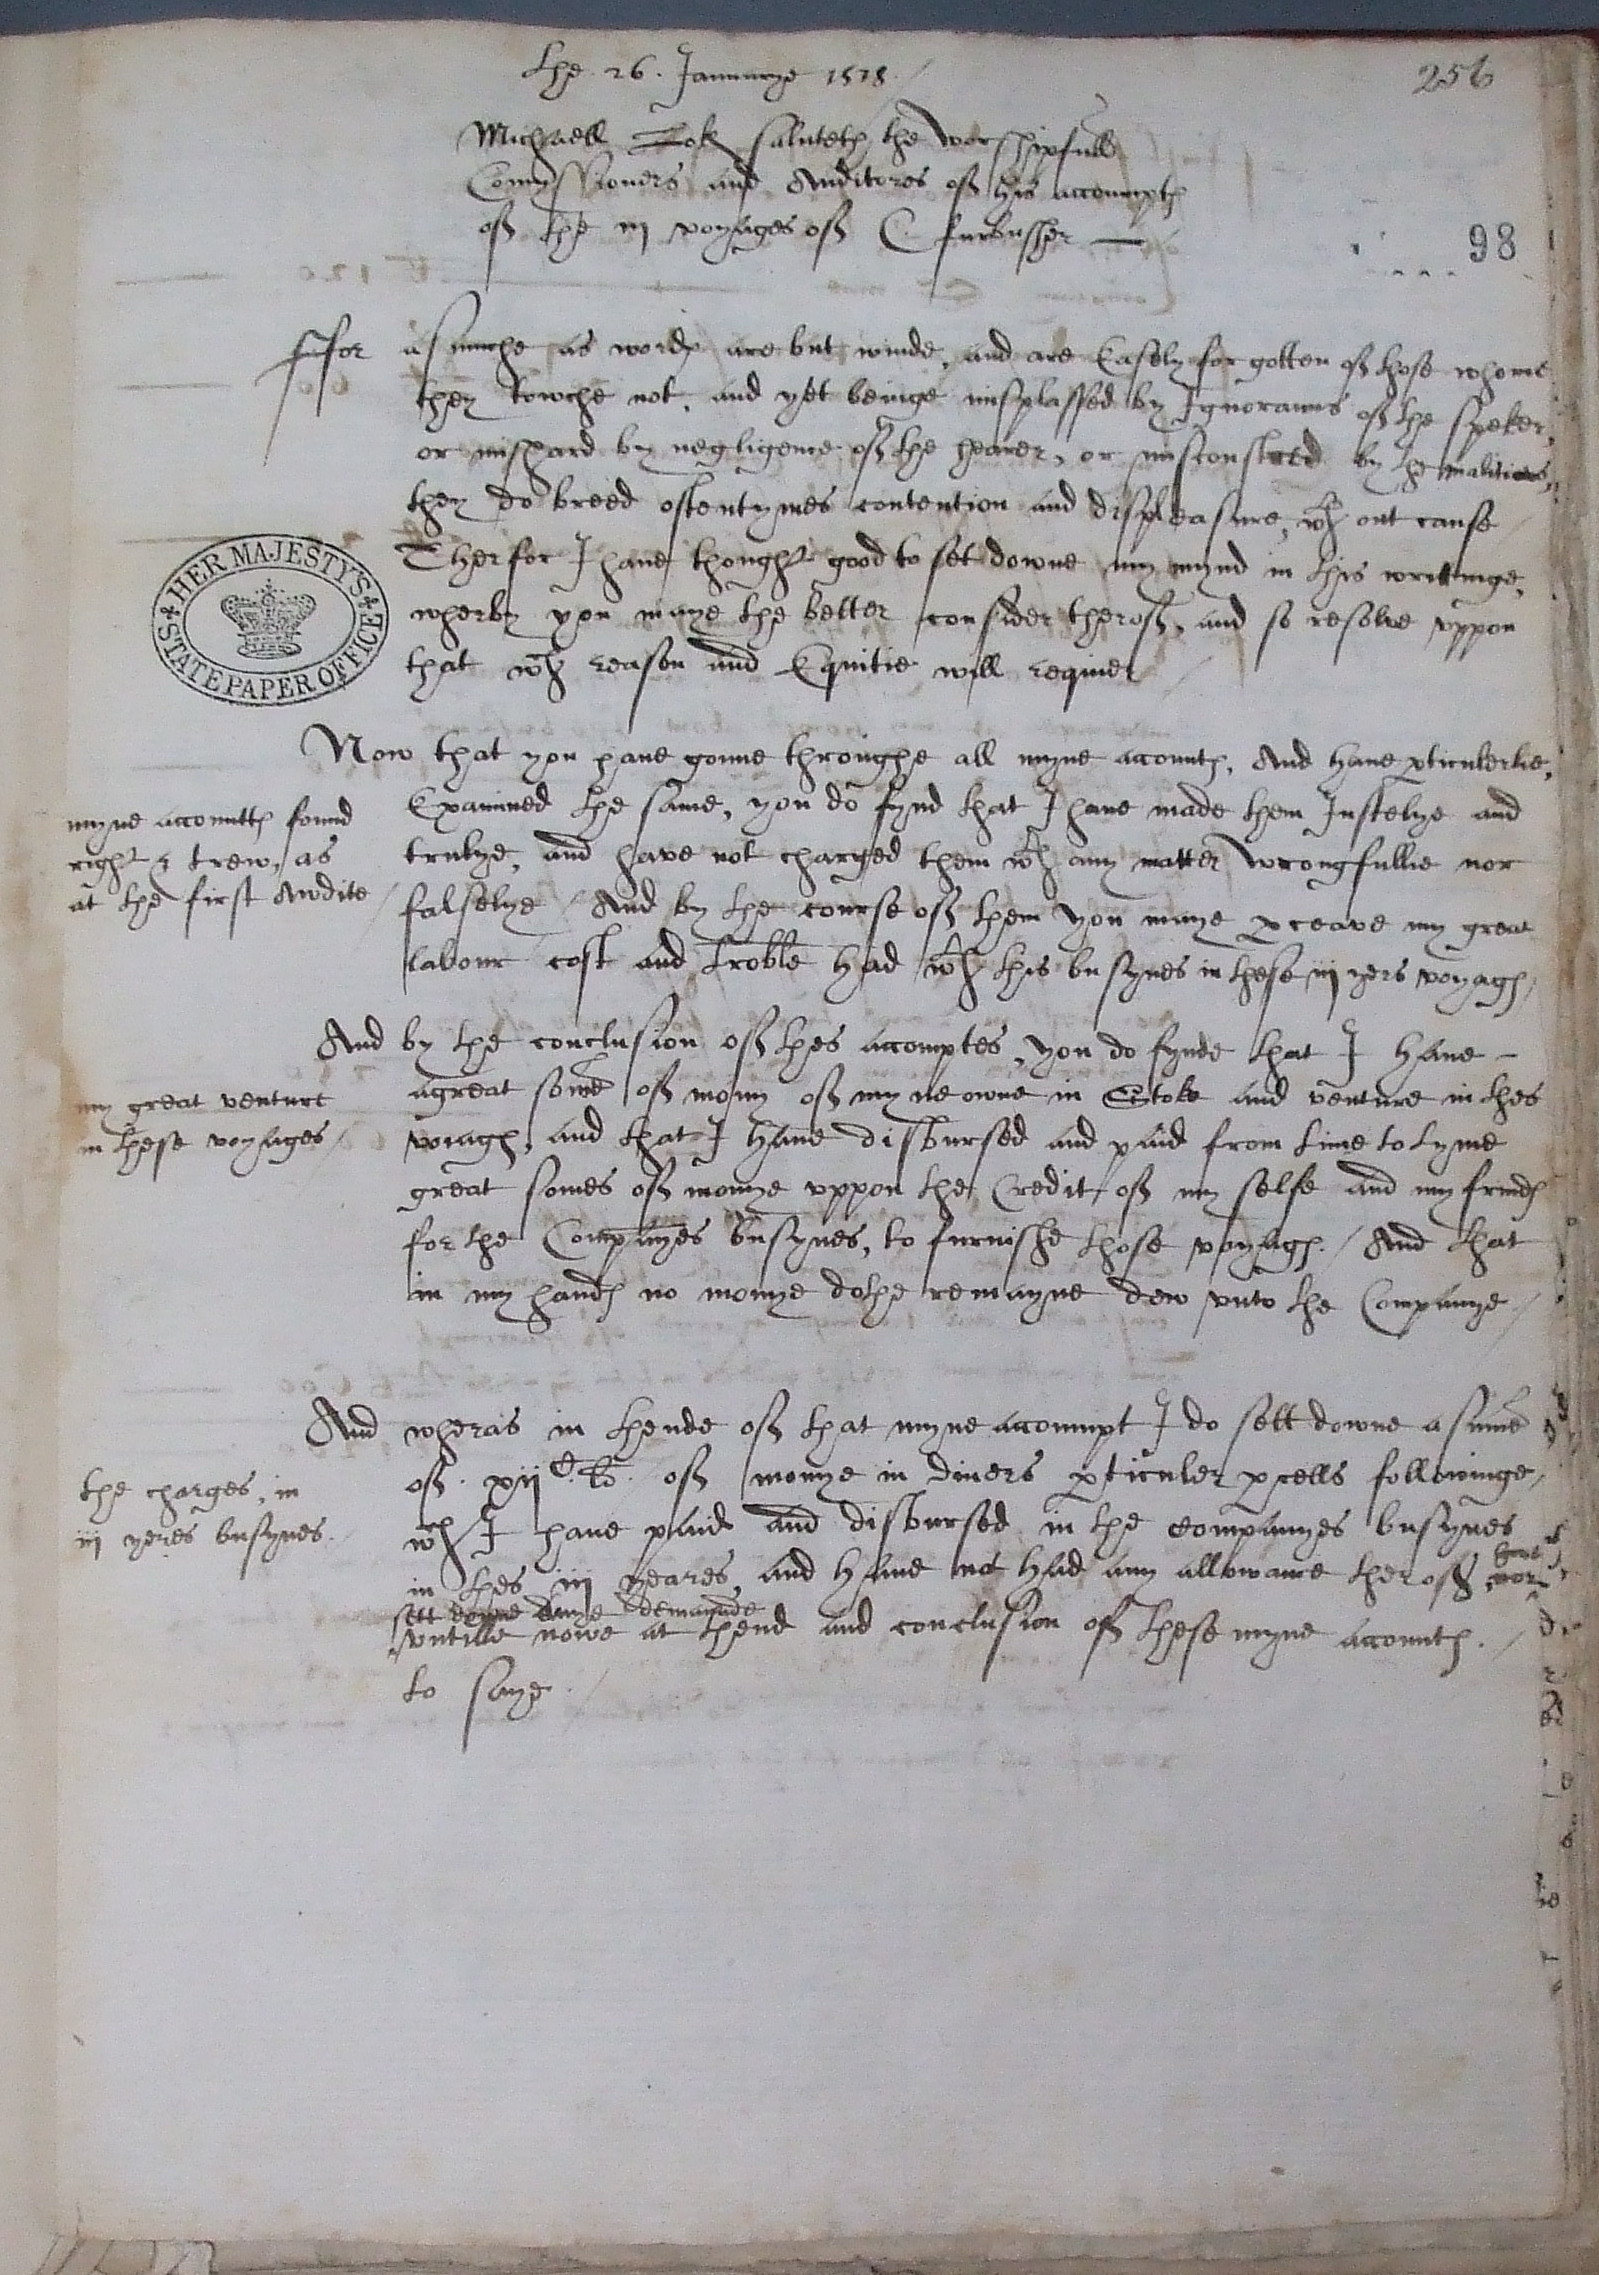 the .26. Januarye 1578 /
256
Michaell Lok saluteth the worshipfull
Comyssioners and Auditores of his accompts
of the iij voyages of C furbusher —
98
ffor asmuche as words are but winde, and are Easely forgotten of those whome
they towche not, and yet beinge misplassed by Ignorauns of the speker,
or mishard by negligence of the hearer, or misconstred by the malitious,
they do breed oftentymes contention and displeasure, wth out cause /
HER MAJESTY'S
STATE PAPER OFFICE
Therfor I have thought good to set downe my mynd in this writtinge,
wherby you maye the better consider therof, and so resolve uppon
that wch reason and Equitie will requier /
Now that you have gonne throughe all myne accounts, And have perticulerlie,
Examined the same, you do fynd that I have made them Justelye and
myne accountts found
right & trew, as
at the first Awdite /
trulye, and have not charged them wth any matter wrongfullie nor
falselye / And by the course of them you maye perceave my great
labour cost and troble had wth this busynes in these iij yers voyags /
And by the conclusion of thes accomptes, you do fynde that I have -
my great venture
in these voyages /
a great some of mony of myne owne in Stok and venture in thes
voiags, and that I have disbursed and paid from time to tyme
great somes of monye uppon the Credit of my selfe and my frinds
for the Companyes busynes, to furnishe those voyags. / And that
in my hands no monye dothe remayne dew unto the Companye /
And wheras in thende of that myne accoumpt I do sett downe a sume
the charges, in
iij yeres busynes.
of . xijC. li. of monye in divers perticuler percells followinge,
wch I have paid and disbursed in the companyes busynes
in thes iij yeares, and have not had any allowance therof, nor
but
sett downe anye demaunde
untille nowe at thend and conclusion of these myne accounts. /
to saye. /